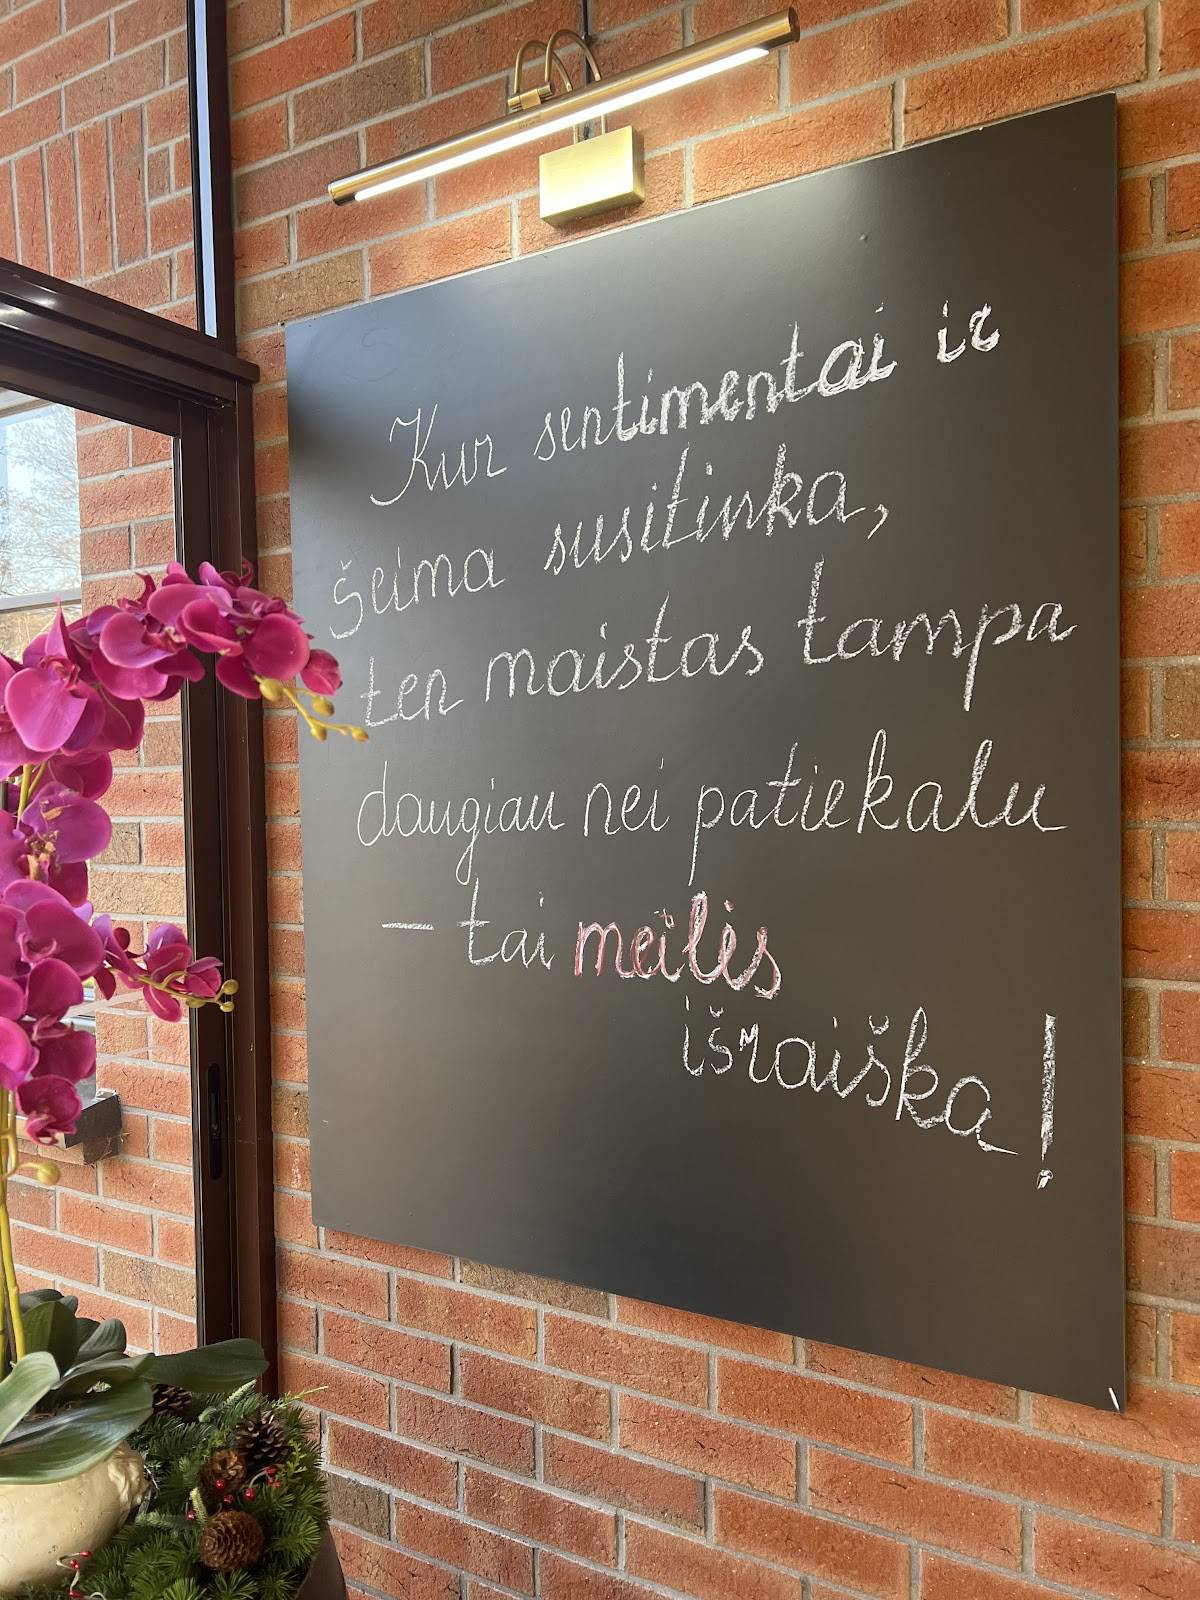 Kur sentimentai ir
šeima susitinka,
ten maistas tampa
daugiau nei patiekalu
– tai meilės
išraiška!